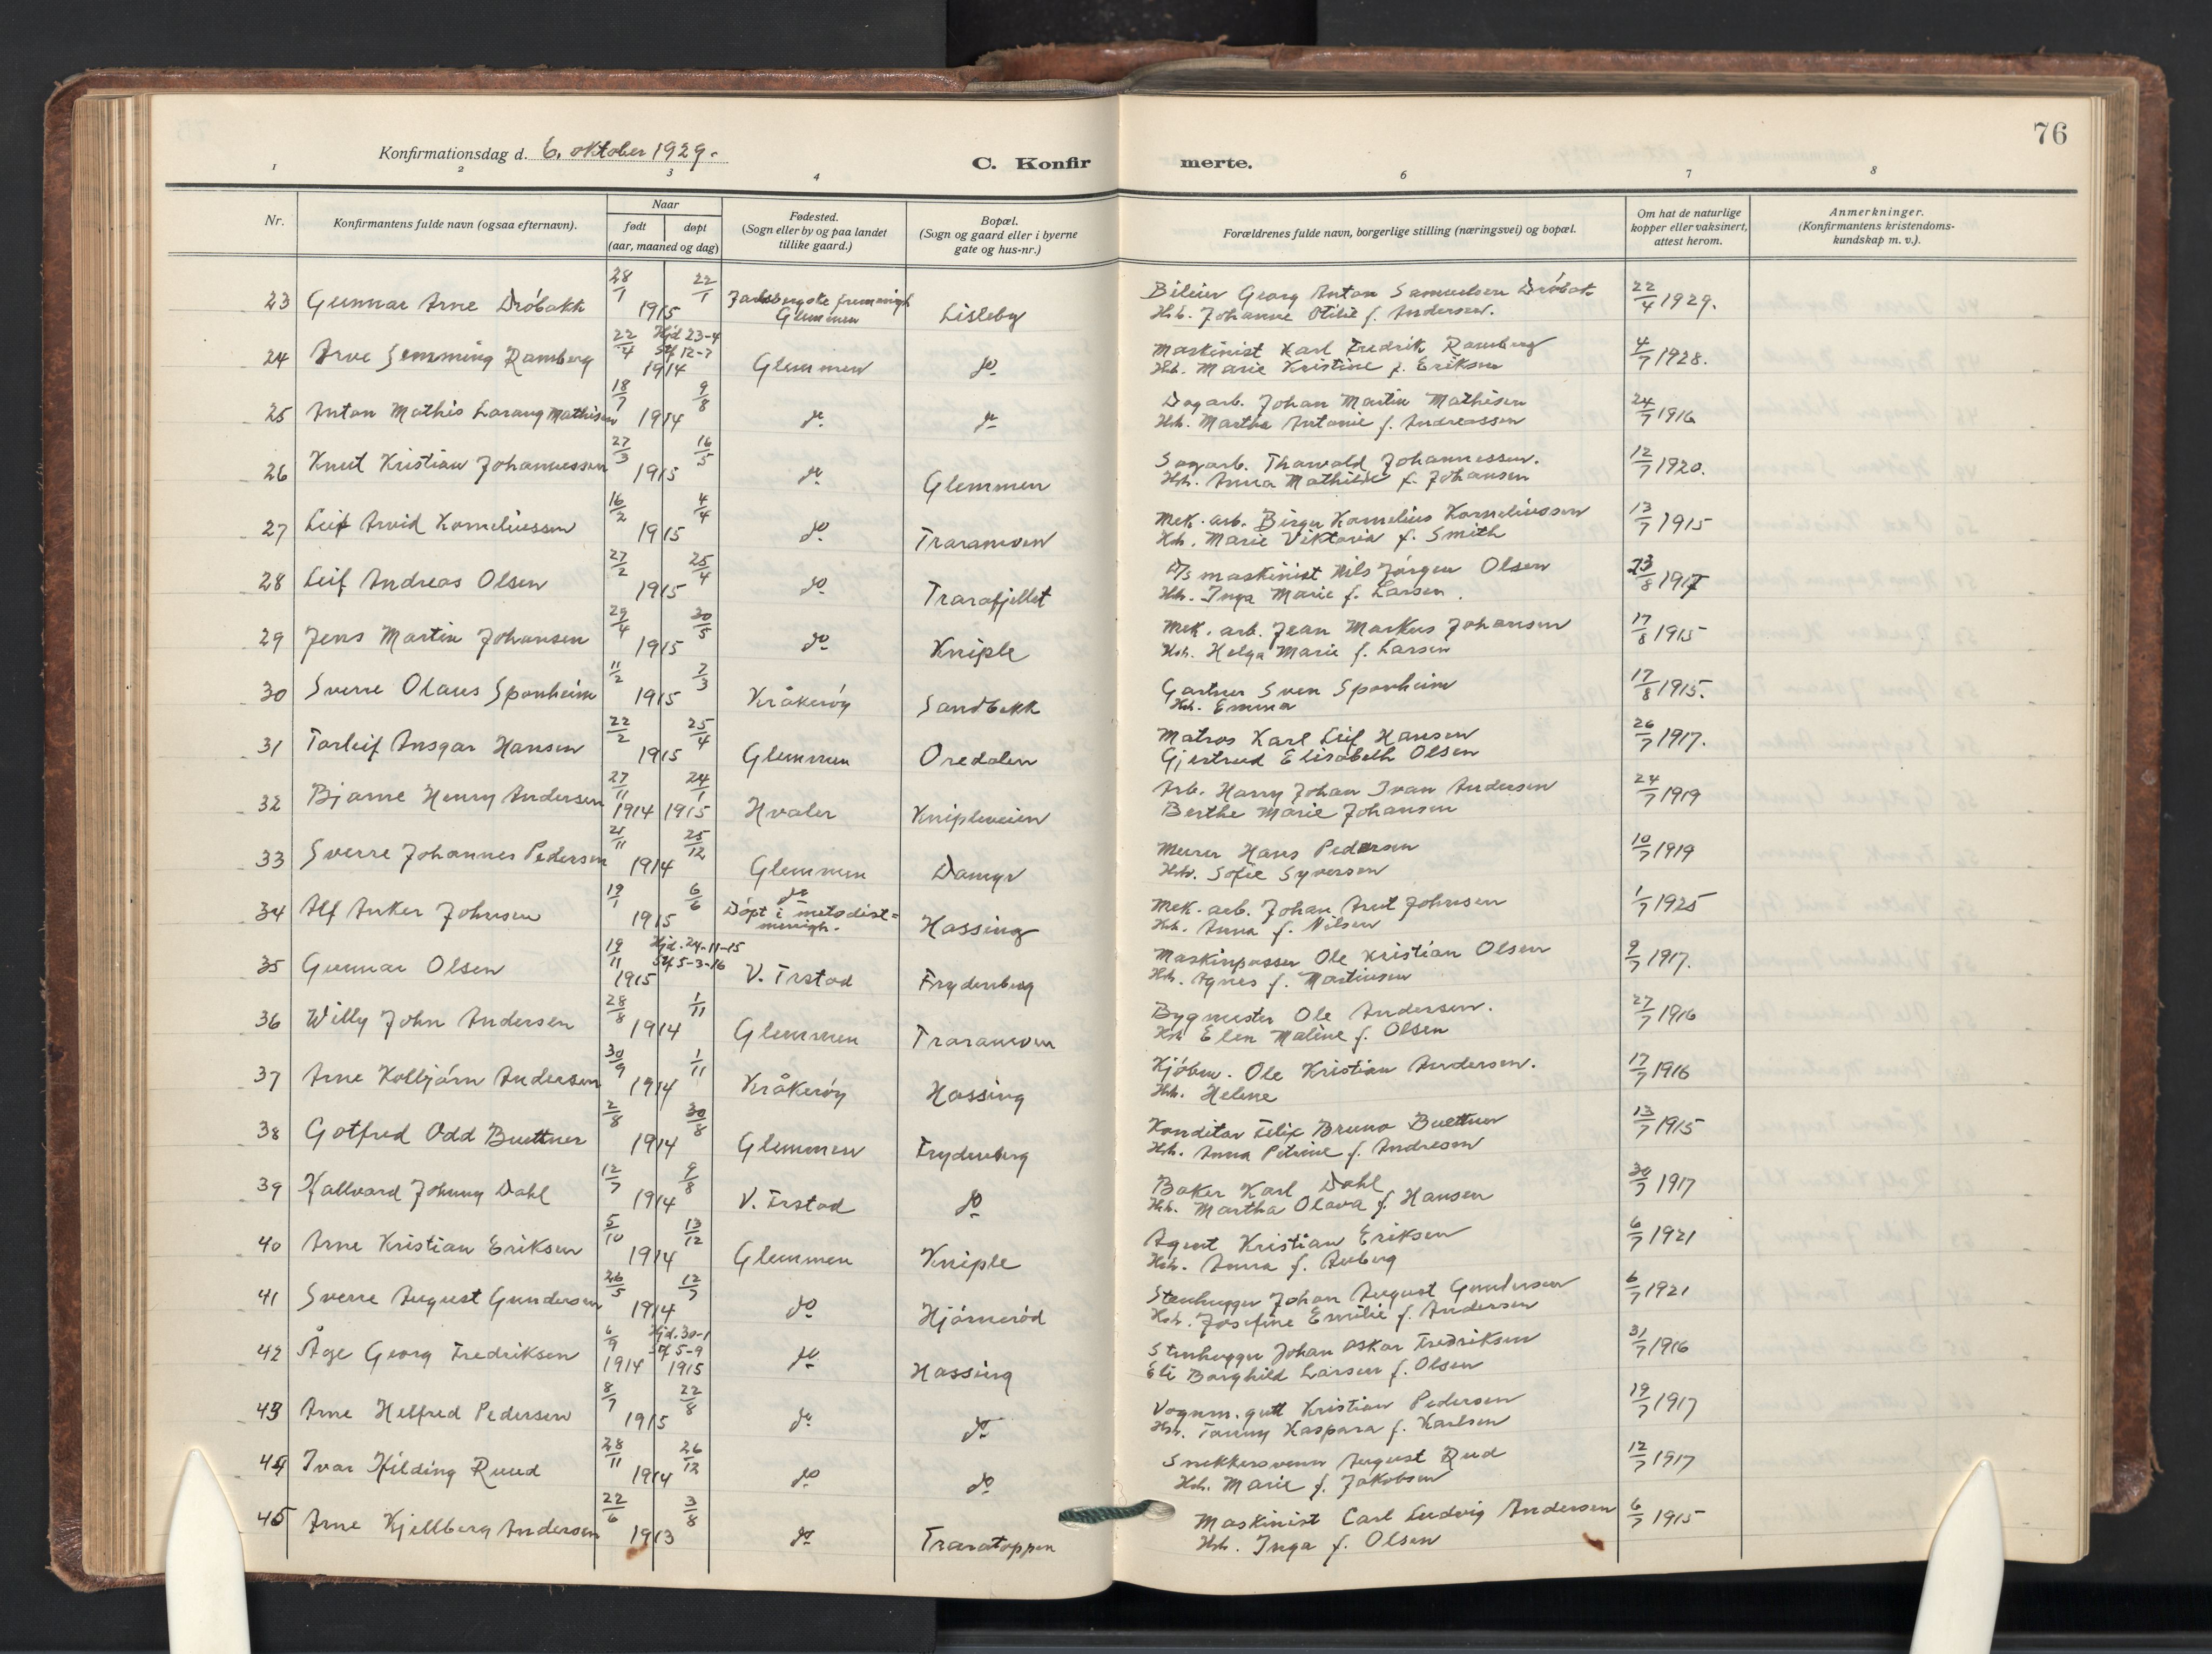 76
Konfirmationsdag d. 6. oktober 1929.
C. Konfirmerte.
1 2 3 4 6 7 8
Nr.
Konfirmantens fulde navn (ogsaa efternavn).
Naar
født døpt
(aar, maaned og dag)
Fødested.
(Sogn eller by og paa landet
tillike gaard.)
Bopæl.
(Sogn og gaard eller i byerne
gate og hus-nr.)
Forældrenes fulde navn, borgerlige stilling (næringsvei) og bopæl.
Om hat de naturlige
kopper eller vaksinert,
attest herom.
Anmerkninger.
(Konfirmantens kristendoms-
kundskap m. v.).
23 Gunnar Arne Dröbakk 28/1 22/1 1915 Glemmen Lisleby Bileier Georg Anton Samuelsen Dröbak 22/4 1929.
Hst. Johanne Otilie f. Andersen.
24 Arve Semming Ramberg 22/4 Hjd 23-4 Stf 12-7 1914 Glemmen do Maskinist Karl Fredrik Ramberg 4/7 1928.
Hst. Marie Kristine f. Eriksen
25 Anton Mathis Larang Mathisen 18/7 9/8 1914 do do Dagarb. Johan Martin Mathisen 24/7 1916
Hst. Martha Antonie f. Andreassen
26 Knut Kristian Johannessen 27/3 16/5 1915 do Glemmen Sagarb. Tharvald Johannessen. 12/7 1920.
Hst. Anna Mathilde f. Johansen
27 Leif Arvid Korneliussen 16/2 4/4 1915 do Traramoen Mek. arb. Birger Kornelius Korneliussen 13/7 1915
Hst. Marie Viktoria f. Smith
28 Leif Andreas Olsen 27/2 25/4 1915 do Trarafjellet D/s maskinist Nils Jörgen Olsen 23/8 1917
Hst. Inga Marie f. Larsen.
29 Jens Martin Johansen 29/4 30/5 1915 do Kniple Mek. arb. Jean Markus Johansen 17/8 1915
Hst. Helga Marie f. Larsen
30 Sverre Olaus Sponheim 11/2 7/3 1915 Kråkeröy Sandbekk Gartner Sven Sponheim 17/8 1915.
Hst. Emma
31 Torleif Ansgar Hansen 22/2 25/4 1915 Glemmen Oredalen Matros Karl Leif Hansen 26/7 1917.
Gjertrud Elisabeth Olsen
32 Bjarne Henry Andersen 27/11 24/1 1914 1915 Hvaler Knipleveien Arb. Harry Johan Ivan Andersen 24/7 1919
Berthe Marie Johansen
33 Sverre Johannes Pedersen 21/11 25/12 1914 Glemmen Damyr Murer Hans Pedersen 10/7 1919
Hst. Sofie Syversen
34 Alf Anker Johnsen 19/1 6/6 1915 do Döpt i metodist=menigh. Hassing Mek. arb. Johan Arnt Johnsen 1/7 1925
Hst. Anna f. Nilsen
35 Gunnar Olsen 19/11 Hjd. 24-11-15 Stf 5-3-16 1915 V. Frstad Frydenberg Maskinpasser Ole Kristian Olsen 9/7 1917.
Hst. Agnes f. Martinsen
36 Willy John Andersen 28/8 1/11 1914 Glemmen Traramoen Bygmester Ole Andersen. 27/7 1916
Hst Elen Maline f. Olsen
37 Arne Kolbjörn Andersen 30/9 1/11 1914 Kråkeröy Hassing Kjöbm. Ole Kristian Andersen. 17/7 1916
Hst. Helene
38 Gotfred Odd Buettner 2/8 30/8 1914 Glemmen Frydenberg Konditor Felix Bruno Buettner 13/7 1915
Hst. Anna Petrine f. Andresen
39 Hallvard Johnny Dahl 12/7 9/8 1914 V. Frstad do Baker Karl Dahl 30/7 1917
Hst. Martha Olava f. Hansen
40 Arne Kristian Eriksen 5/10 13/12 1914 Glemmen Kniple Agent Kristian Eriksen 6/7 1921
Hst. Anna f. Auberg
41 Sverre August Gundersen 26/5 12/7 1914 do Hjörneröd Stenhugger Johan August Gundersen 6/7 1921
Hst. Josefine Emilie f. Andersen
42 Åge Georg Fredriksen 6/9 Hjd. 30-1 Stf 5-9 1914 1915 do Hassing Stenhugger Johan Oskar Fredriksen 31/7 1916
Eli Borghild Larsen f. Olsen
43 Arne Helfred Pedersen 8/7 22/8 1915 do do Vognm. gutt Kristian Pedersen 19/7 1917
Hst. Fanny Kaspara f. Karlsen
44 Ivar Hilding Ruud 28/11 26/12 1914 do do Snekkersvenn August Rud 12/7 1917
Hst. Marie f. Jakobsen
45 Arne Kjellberg Andersen 22/6 3/8 1913 do Traratoppen Maskinist Carl Ludvig Andersen 6/7 1915
Hst. Inga f. Olsen